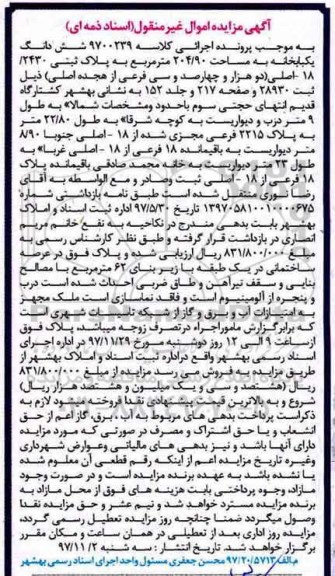 آگهی مزایده اموال غیر منقول(اسناد ذمه ای)
به موجب پرونده اجرائی کلاسه ۹۷۰۰۲۳۹ شش دانگ
یکبابخانه به مساحت ۲۰۴/۹۰ مترمربع به پلاک ثبتی ۲۴۳۰/
۱۸ -اصلی(دو هزار و چهارصد و سی فرعی از هجده اصلی) ذیل
ثبت ۲۸۹۳۰ و صفحه ۲۱۷ و جلد ۱۵۲ به نشانی بهشهر کشتارگاه
قدیم انتهای حجتی سوم باحدود ومشخصات شمالا» به طول
۹ متر درب و دیواریست به کوچه شرقا» به طول ۲۲/۸۰ متر
به پلاک ۲۲۱۵ فرعی مجزی شده از ۱۸ - اصلی جنوبا ۸/۹۰
متر دیواریست به باقیمانده ۱۸ فرعی از ۱۸ - اصلی غربا» به
طول ۲۳ متر دیواریست به خانه محمد صادقی باقیمانده پلاک
۱۸ فرعی از ۱۸ - اصلی ثبت وصادر و مع الواسطه به آقای
رضا نوری منتقل شده است طبق نامه بازداشتی شماره
۱۳۹۷۰۵۸۱۰۰۱۰۰۰۰۶۷۵ تاریخ ۹۷/۵/۳۰ اداره ثبت اسناد و املاک
بهشهر بابت بدهی مندرج در نکاحیه به نفع خانم مریم
انصاری در بازداشت قرار گرفته و طبق نظر کارشناس رسمی به
مبلغ ۸۳۱/۸۰۰/۰۰۰ ریال ارزیابی شده و پلاک فوق در عرصه
ساختمانی در یک طبقه با زیر بنای ۶۲ مترمربع با مصالح
بنایی و سقف تیرآهن و طاق ضربی احداث شده است درب
و پنجره از آلومینیوم است و فاقد نماسازی است ملک مجهز
به امتیازات آب و برق و گاز از شبکه تاسیسات شهری است
که برابر گزارش مامور اجراء در تصرف زوجه میباشد، پلاک فوق
از ساعت ۹ الی ۱۲ روز دوشنبه مورخ ۹۷/۱۱/۲۹ در اداره اجرای
اسناد رسمی بهشهر واقع در اداره ثبت اسناد و املاک بهشهر از
طریق مزایده به فروش می رسد مزایده از مبلغ ۸۳۱/۸۰۰/۰۰۰
ریال (هشتصد و سی و یک میلیون و هشتصد هزار ریال)
شروع و به بالاترین قیمت پیشنهادی نقدا فروخته میشود لازم به
ذکر است پرداخت بدهی های مربوط به آب، برق، گاز اعم از حق
انشعاب و یا حق اشتراک و مصرف در صورتی که مورد مزایده
دارای آنها باشد و نیز بدهی های مالیاتی وعوارض شهرداری
وغیره تاریخ مزایده اعم از اینکه رقم قطعی آن معلوم شده
یا نشده باشد به عهده برنده مزایده است و در صورت وجود
مازاد، وجوه پرداختی بابت هزینه های فوق از محل مازاد به
برنده مزایده مسترد خواهد شد و نیم عشر و حق مزایده نقدا
وصول میگردد ضمنا چنانچه روز مزایده تعطیل رسمی گردد،
مزایده روز اداری بعد از تعطیلی در همان ساعت و مکان مقرر
برگزار خواهد شد. تاریخ انتشار : سه شنبه ۹۷/۱۱/۲
م.الف/۹۷/۲۰/۵۷۱۳ محسن جعفری مسئول واحد اجرای اسناد رسمی بهشهر